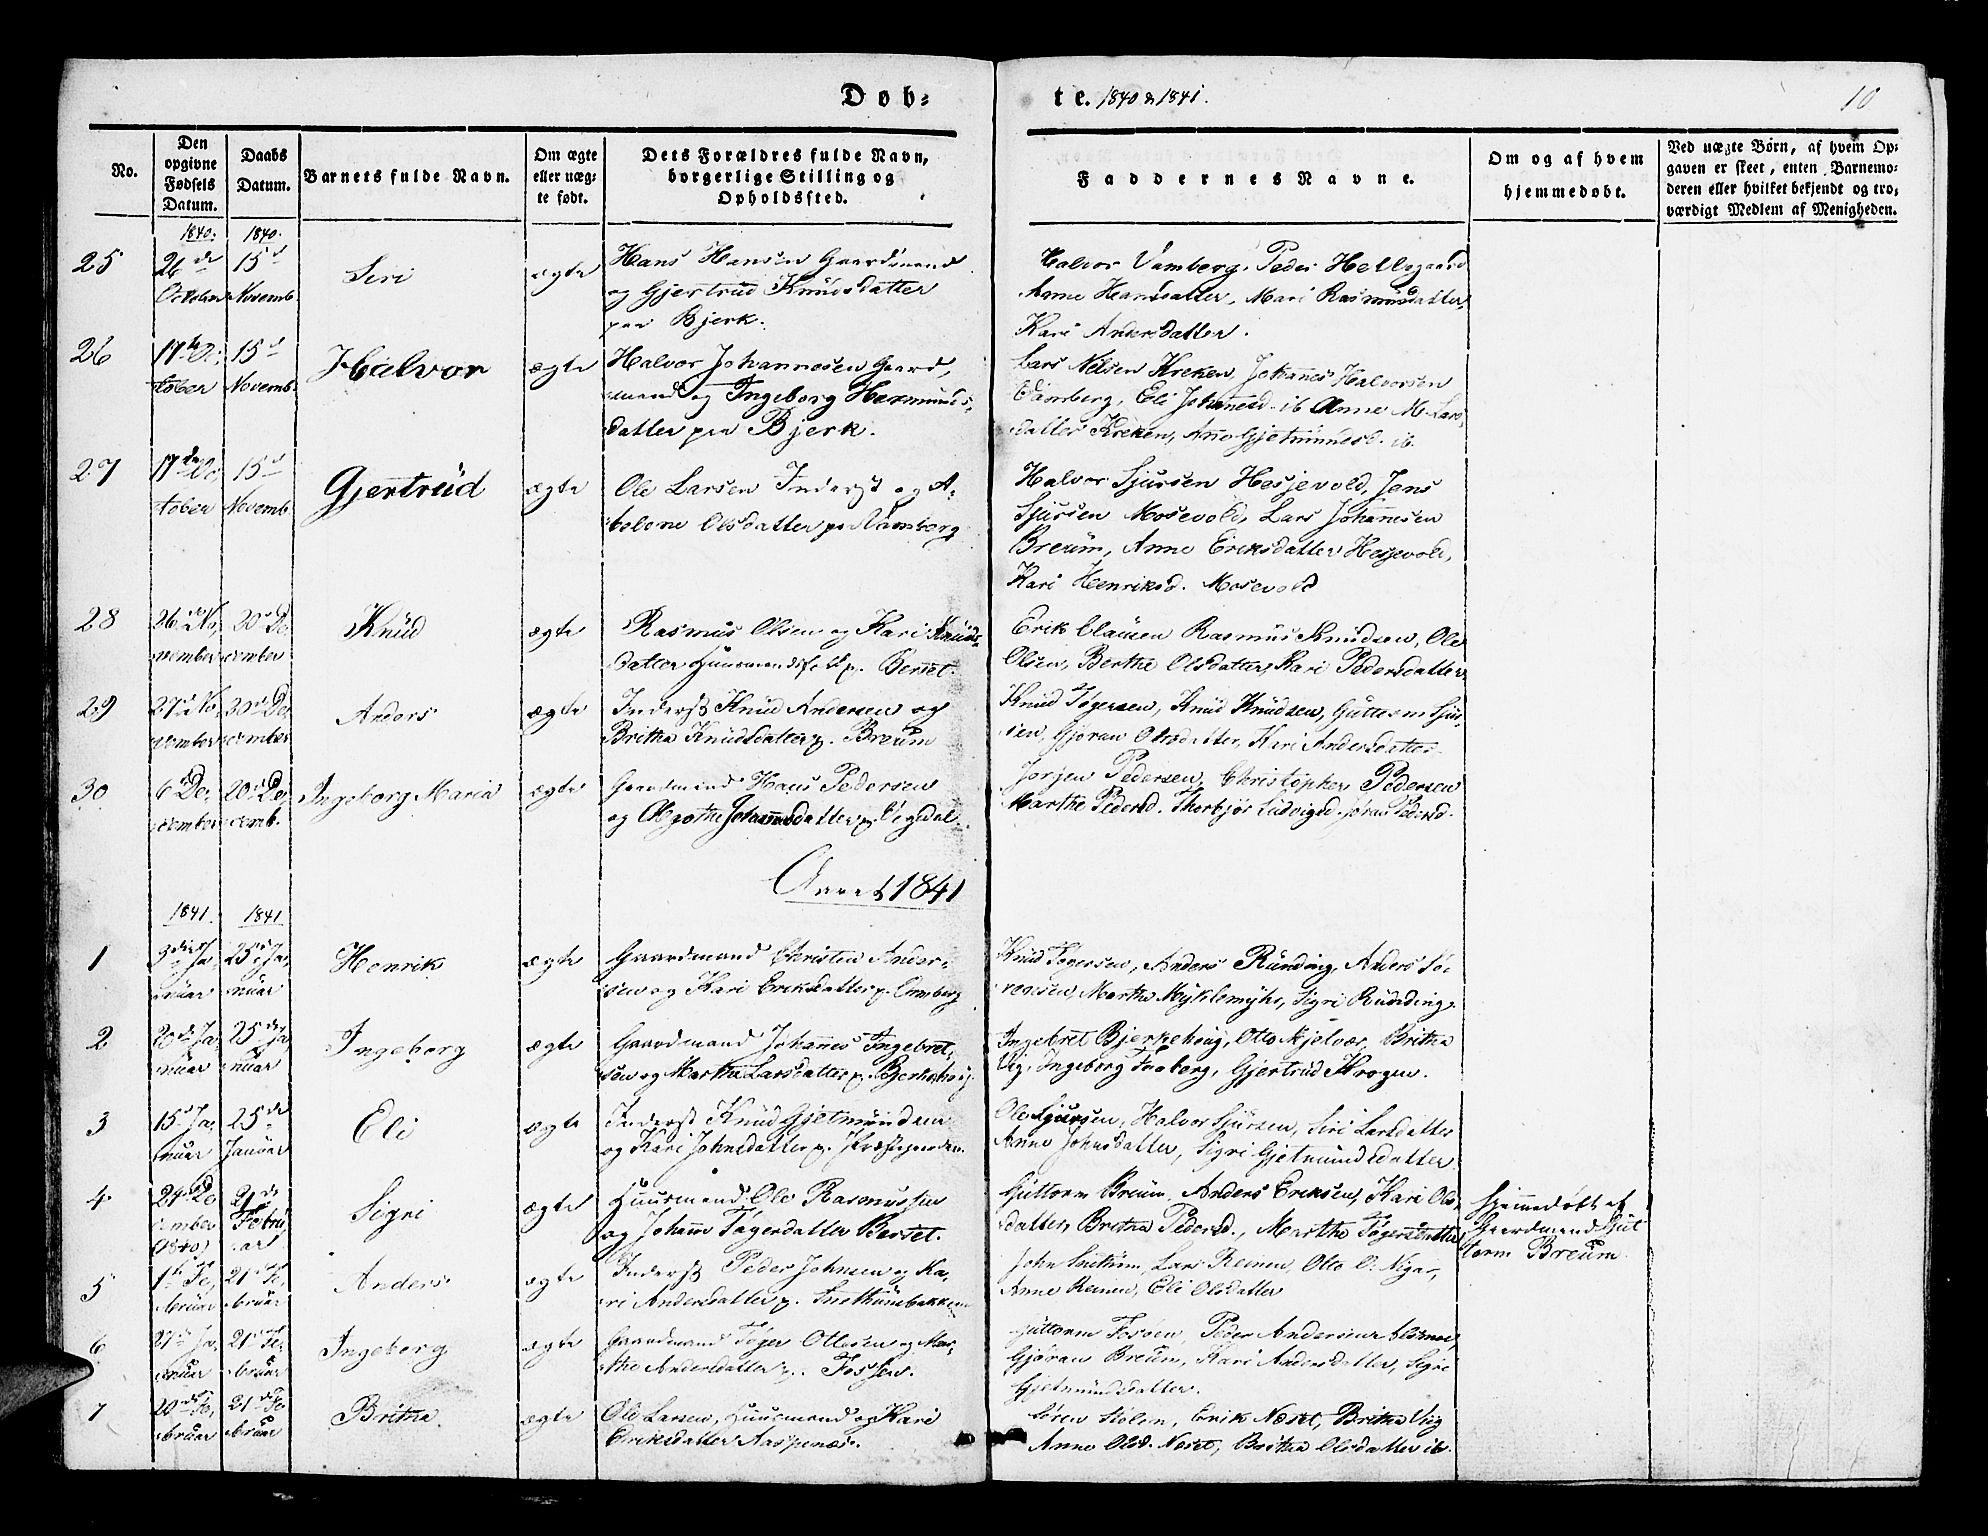 Døb-
te. 1840 & 1841.
10
No.
Den opgivne Fødsels Datum.
Daabs Datum.
Barnets fulde Navn.
Om ægte eller uægte født.
Dets Forældres fulde Navn, borgerlige Stilling og Opholdssted.
Faddernes Navne.
Om og af hvem hjemmedøbt.
Ved uægte Børn, af hvem Opgaven er skeet, enten Barnemoderen eller hvilket bekjendt og troværdigt Medlem af Menigheden.
1840.
1840.
25
26de October
15d Novemb.
Siri
ægte
Hans Hansen Gaardmand
og Gjertrud Knudsdatter
paa Bjerk.
Halvor Vamberg, Peder Hellegaard
Anne Hansdatter, Mari Rasmusdatter,
Kari Andersdatter.
26
17de October
15d Novemb.
Halvor
ægte
Halvor Johannesen Gaard,
mand og Ingeborg Hermunds,
datter paa Bjerk.
Lars Nilsen Kreken, Johannes Halvorsen
Vamberg, Eli Johanesd. ib Anne M. Lars,
datter Kreken, Ane Gjetmundsd. ib.
27
17de October
15d Novemb.
Gjertrud
ægte
Ole Larsen Inderst og A-
bolone Olsdatter pa Vamberg
Halvor Sjursen Hesjevold, Jens
Sjursen Mosevold, Lars Johannesen
Breum, Anne Eriksdatter Hesjevold,
Kari Henriksd. Mosevold
28
26de November
20d December
Knud
ægte
Rasmus Olsen og Kari Knuds-
datter Huusmandsfolk p. Berset.
Erik Clausen Rasmus Knudsen, Ole
Olsen, Berthe Olsdatter, Kari Pedersdatter.
29
27d November
20d December
Anders
ægte
Inderst Knud Andersen og
Britha Knudsdatter p. Breum
Knud Tøgersen, Knud Knudsen, Guttorm Sjur-
sen, Gjøran Olsdatter, Kari Andersdatter
30
6d December
20d Decemb.
Ingeborg Maria
ægte
Gaardmand Hans Pedersen
og Olgothe Johannesdatter p. Vigdal.
Jørgen Pedersen, Christopher Pedersen
Marthe Pedersd. Thorbjør Ludvigsd. Jøran Pedersd.
Aaret 1841
1841.
1841.
1
3die Januar
25de Januar
Henrik
ægte
Gaardmand Christen Ander-
sen og Kari Eriksdatter p.
Knud Tøgersen, Anders Runding, Anders Sø-
rensen, Martha Myklemyhr, Sigri Rundding.
2
20de Januar
25de Januar
Ingeborg
ægte
Gaardmand Johannes Ingebret,
sen og Martha Larsdatter p. Bjerkehoug.
Ingebret Bjerkehoug, Otto Kjelvær, Britha
Vig, Ingeborg Faaberg, Gjertrud Krogen.
3
15d Januar
25de Januar
Eli
ægte
Inderst Knud Gjetmundsen
og Kari Johnsdatter p. Præstegarden.
Ole Sjursen, Halvor Sjursen, Siri Larsdatter
Anne Johnsdatter, Sigri Gjetmundsdatter.
4
24de December (1840)
21de Februar
Sigri
ægte
Huusmand Ole Rasmussen
og Johanne Tøgersdatter Berset.
Guttorm Breum, Anders Eriksen, Kari Ols,
datter, Britha Pedersd., Marthe Tøgersdatter
Hjemmedøbt af
Gaardmand Gut
torm Breum.
5
1ste Februar
21de Februar
Anders
ægte
Inderst Peder Johnsen og Ka,
ri Andersdatter p. Snethunsbakken
John Snethun, Lars Reinen, Otto O. Nigar,
Anne Reinen, Eli Olsdatter
6
27de Januar
21de Februar
Ingeborg
ægte
Gaardmand Tøger Ottesen og Mar,
the Andersdatter p. Fossøen.
Guttorm Fosøen, Peder Andersen
Gjøran Breum, Kari Andersdatter, Sigri
Gjetmundsdatter.
7
20de Februar
21de Februar
Britha
ægte
Ole Larsen, Huusmand og Kari
Eriksdatter Aaspenæs.
Søren Stølen, Erik Neset, Britha Vig
Anne Olsd. Neset, Britha Olsdatter ib.